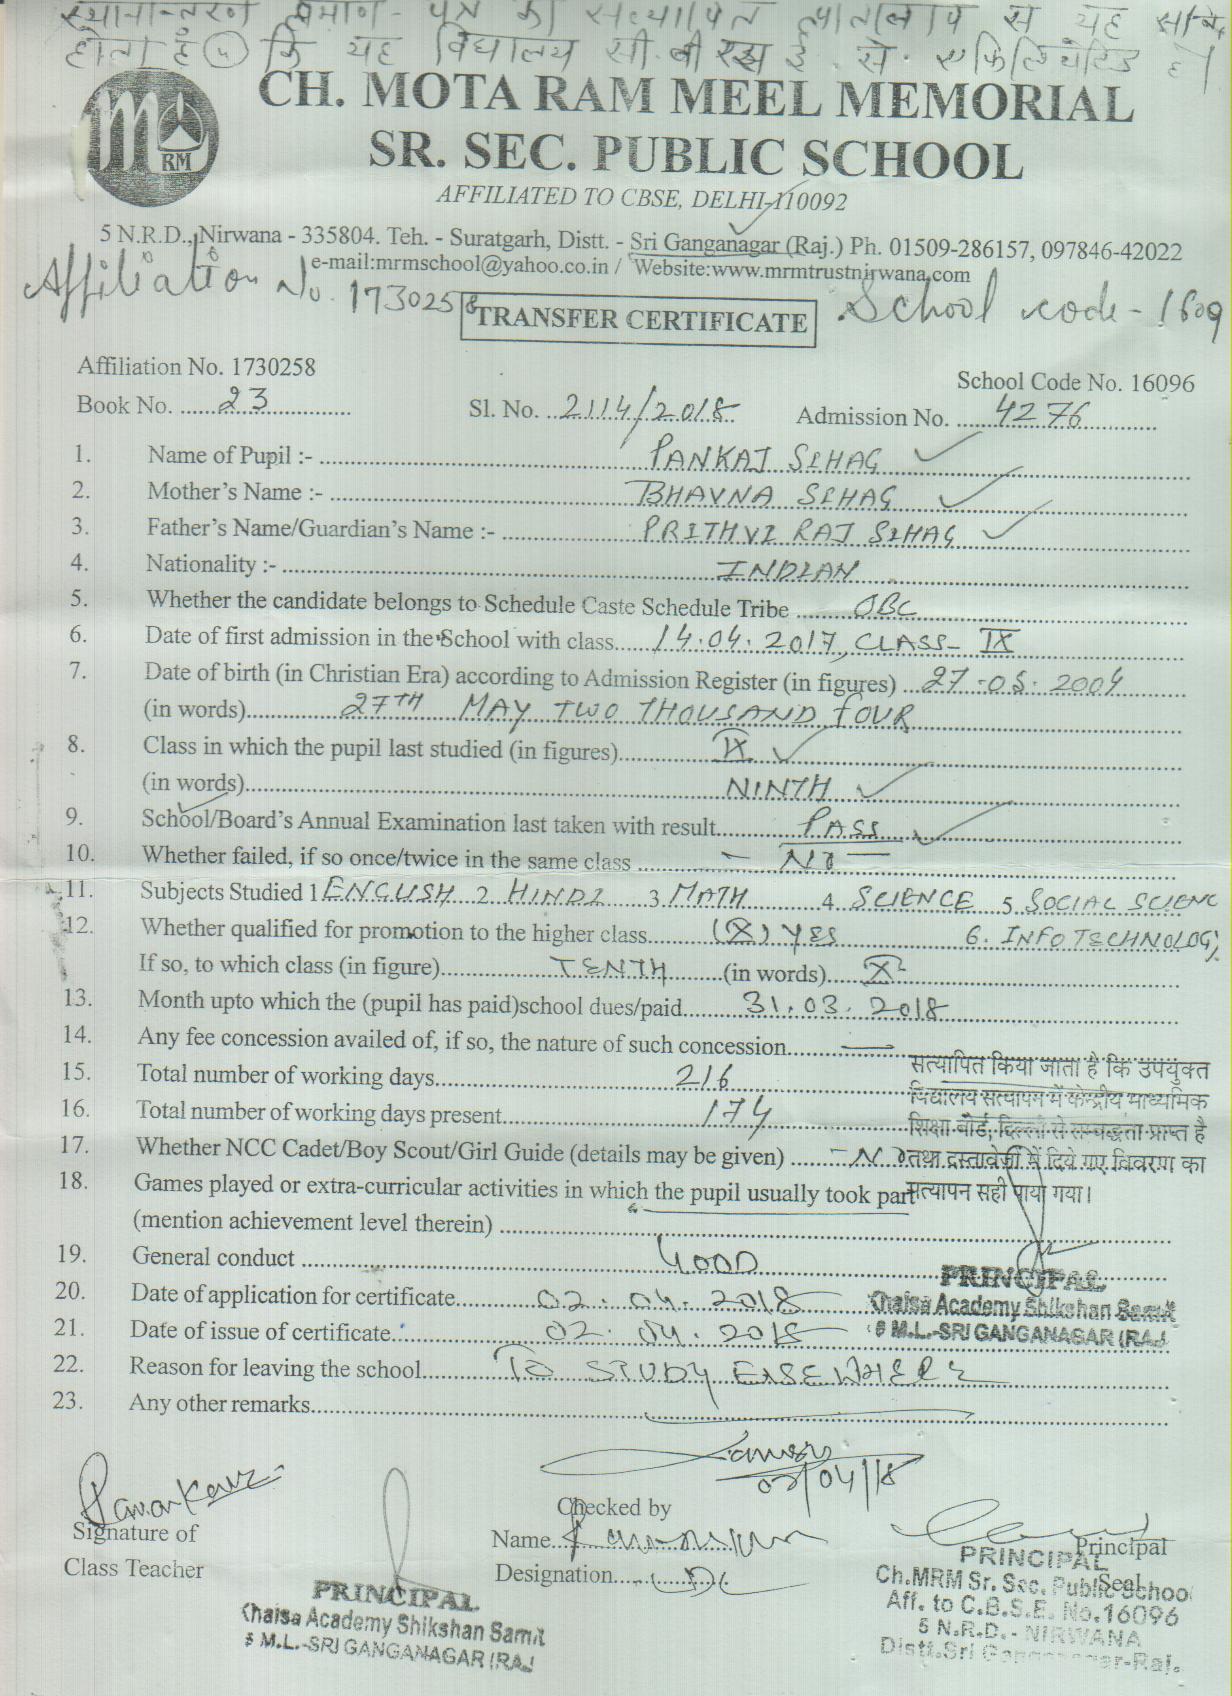 स्थानान्तरण प्रमाण-पत्र का सत्यापित से यह
होता है कि यह विद्यालय सी.बी.एस.ई. से. एफिलियेटिड है।
M RM
CH. MOTA RAM MEEL MEMORIAL
SR. SEC. PUBLIC SCHOOL
AFFILIATED TO CBSE, DELHI-110092
5 N.R.D., Nirwana - 335804. Teh. - Suratgarh, Distt. - Sri Ganganagar (Raj.) Ph. 01509-286157, 097846-42022
e-mail:mrmschool@yahoo.co.in / Website:www.mrmtrustnirwana.com
Affiliation No. 1730258 TRANSFER CERTIFICATE School code - 1609
Affiliation No. 1730258 School Code No. 16096
Book No. 23 Sl. No. 2114/2018 Admission No. 4276
1. Name of Pupil :- PANKAJ SIHAG
2. Mother's Name :- BHAVNA SIHAG
3. Father's Name/Guardian's Name :- PRITHVI RAJ SIHAG
4. Nationality :- INDIAN
5. Whether the candidate belongs to Schedule Caste Schedule Tribe OBC
6. Date of first admission in the School with class 14.04.2017, CLASS- IX
7. Date of birth (in Christian Era) according to Admission Register (in figures) 27-05-2004
(in words) 27TH MAY TWO THOUSAND FOUR
8. Class in which the pupil last studied (in figures) IX
(in words) NINTH
9. School/Board's Annual Examination last taken with result PASS
10. Whether failed, if so once/twice in the same class - NO -
11. Subjects Studied 1 ENGLISH 2 HINDI 3 MATH 4 SCIENCE 5 SOCIAL SCIENC
12. Whether qualified for promotion to the higher class (X) YES 6. INFO TECHNOLOGY
If so, to which class (in figure) TENTH (in words) X
13. Month upto which the (pupil has paid)school dues/paid 31.03.2018
14. Any fee concession availed of, if so, the nature of such concession —
15. Total number of working days 216
16. Total number of working days present 174
17. Whether NCC Cadet/Boy Scout/Girl Guide (details may be given) - No
18. Games played or extra-curricular activities in which the pupil usually took part
(mention achievement level therein)
सत्यापित किया जाता है कि उपयुक्त
विद्यालय सत्यापन में केन्द्रीय माध्यमिक
शिक्षा बोर्ड, दिल्ली से सम्बद्धता प्राप्त है
तथा दस्तावेजों में दिये गए विवरण का
सत्यापन सही पाया गया।
19. General conduct GOOD
20. Date of application for certificate 02.04.2018
21. Date of issue of certificate 02.04.2018
PRINCIPAL
Khaisa Academy Shikshan Samit
5 M.L.-SRI GANGANAGAR (RAJ
22. Reason for leaving the school TO STUDY ELSEWHERE
23. Any other remarks
02/04/18
Signature of
Class Teacher
Checked by
Name
Designation
Principal
Seal
PRINCIPAL
Khaisa Academy Shikshan Samit
5 M.L.-SRI GANGANAGAR (RAJ
PRINCIPAL
Ch.MRM Sr. Sec. Public School
Aff. to C.B.S.E. No.16096
5 N.R.D. - NIRWANA
Distt.Sri Ganganagar-Raj.